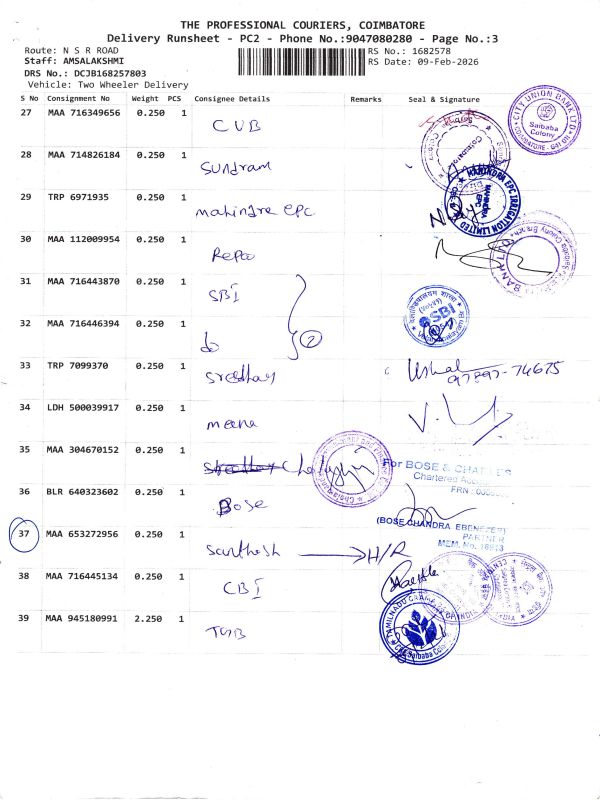 THE PROFESSIONAL COURIERS, COIMBATORE
Delivery Runsheet - PC2 - Phone No.:9047080280 - Page No.:3
Route: N S R ROAD
Staff: AMSALAKSHMI
DRS No.: DCJB168257803
Vehicle: Two Wheeler Delivery
RS No.: 1682578
RS Date: 09-Feb-2026
S No Consignment No Weight PCS Consignee Details Remarks Seal & Signature
27 MAA 716349656 0.250 1 CUB
CITY UNION BANK LTD. Saibaba Colony
28 MAA 714826184 0.250 1 Sundram
29 TRP 6971935 0.250 1 mahindra epc
MAHINDRA EPC IRRIGATION LIMITED
30 MAA 112009954 0.250 1 Repco
31 MAA 716443870 0.250 1 SBI
SBI
32 MAA 716446394 0.250 1 do 2
33 TRP 7099370 0.250 1 Sreedhar Usha 97897-74675
34 LDH 500039917 0.250 1 meena
35 MAA 304670152 0.250 1
For BOSE & CHA
Chartered Acc
FRN
36 BLR 640323602 0.250 1 Bose
(BOSE CHANDRA EBENEZER)
PARTNER
37 MAA 653272956 0.250 1 Santhosh H/R
MEM. No.
38 MAA 716445134 0.250 1 CBI
39 MAA 945180991 2.250 1 TGB
TAMILNADU GRAMA BANK Saibaba Colony